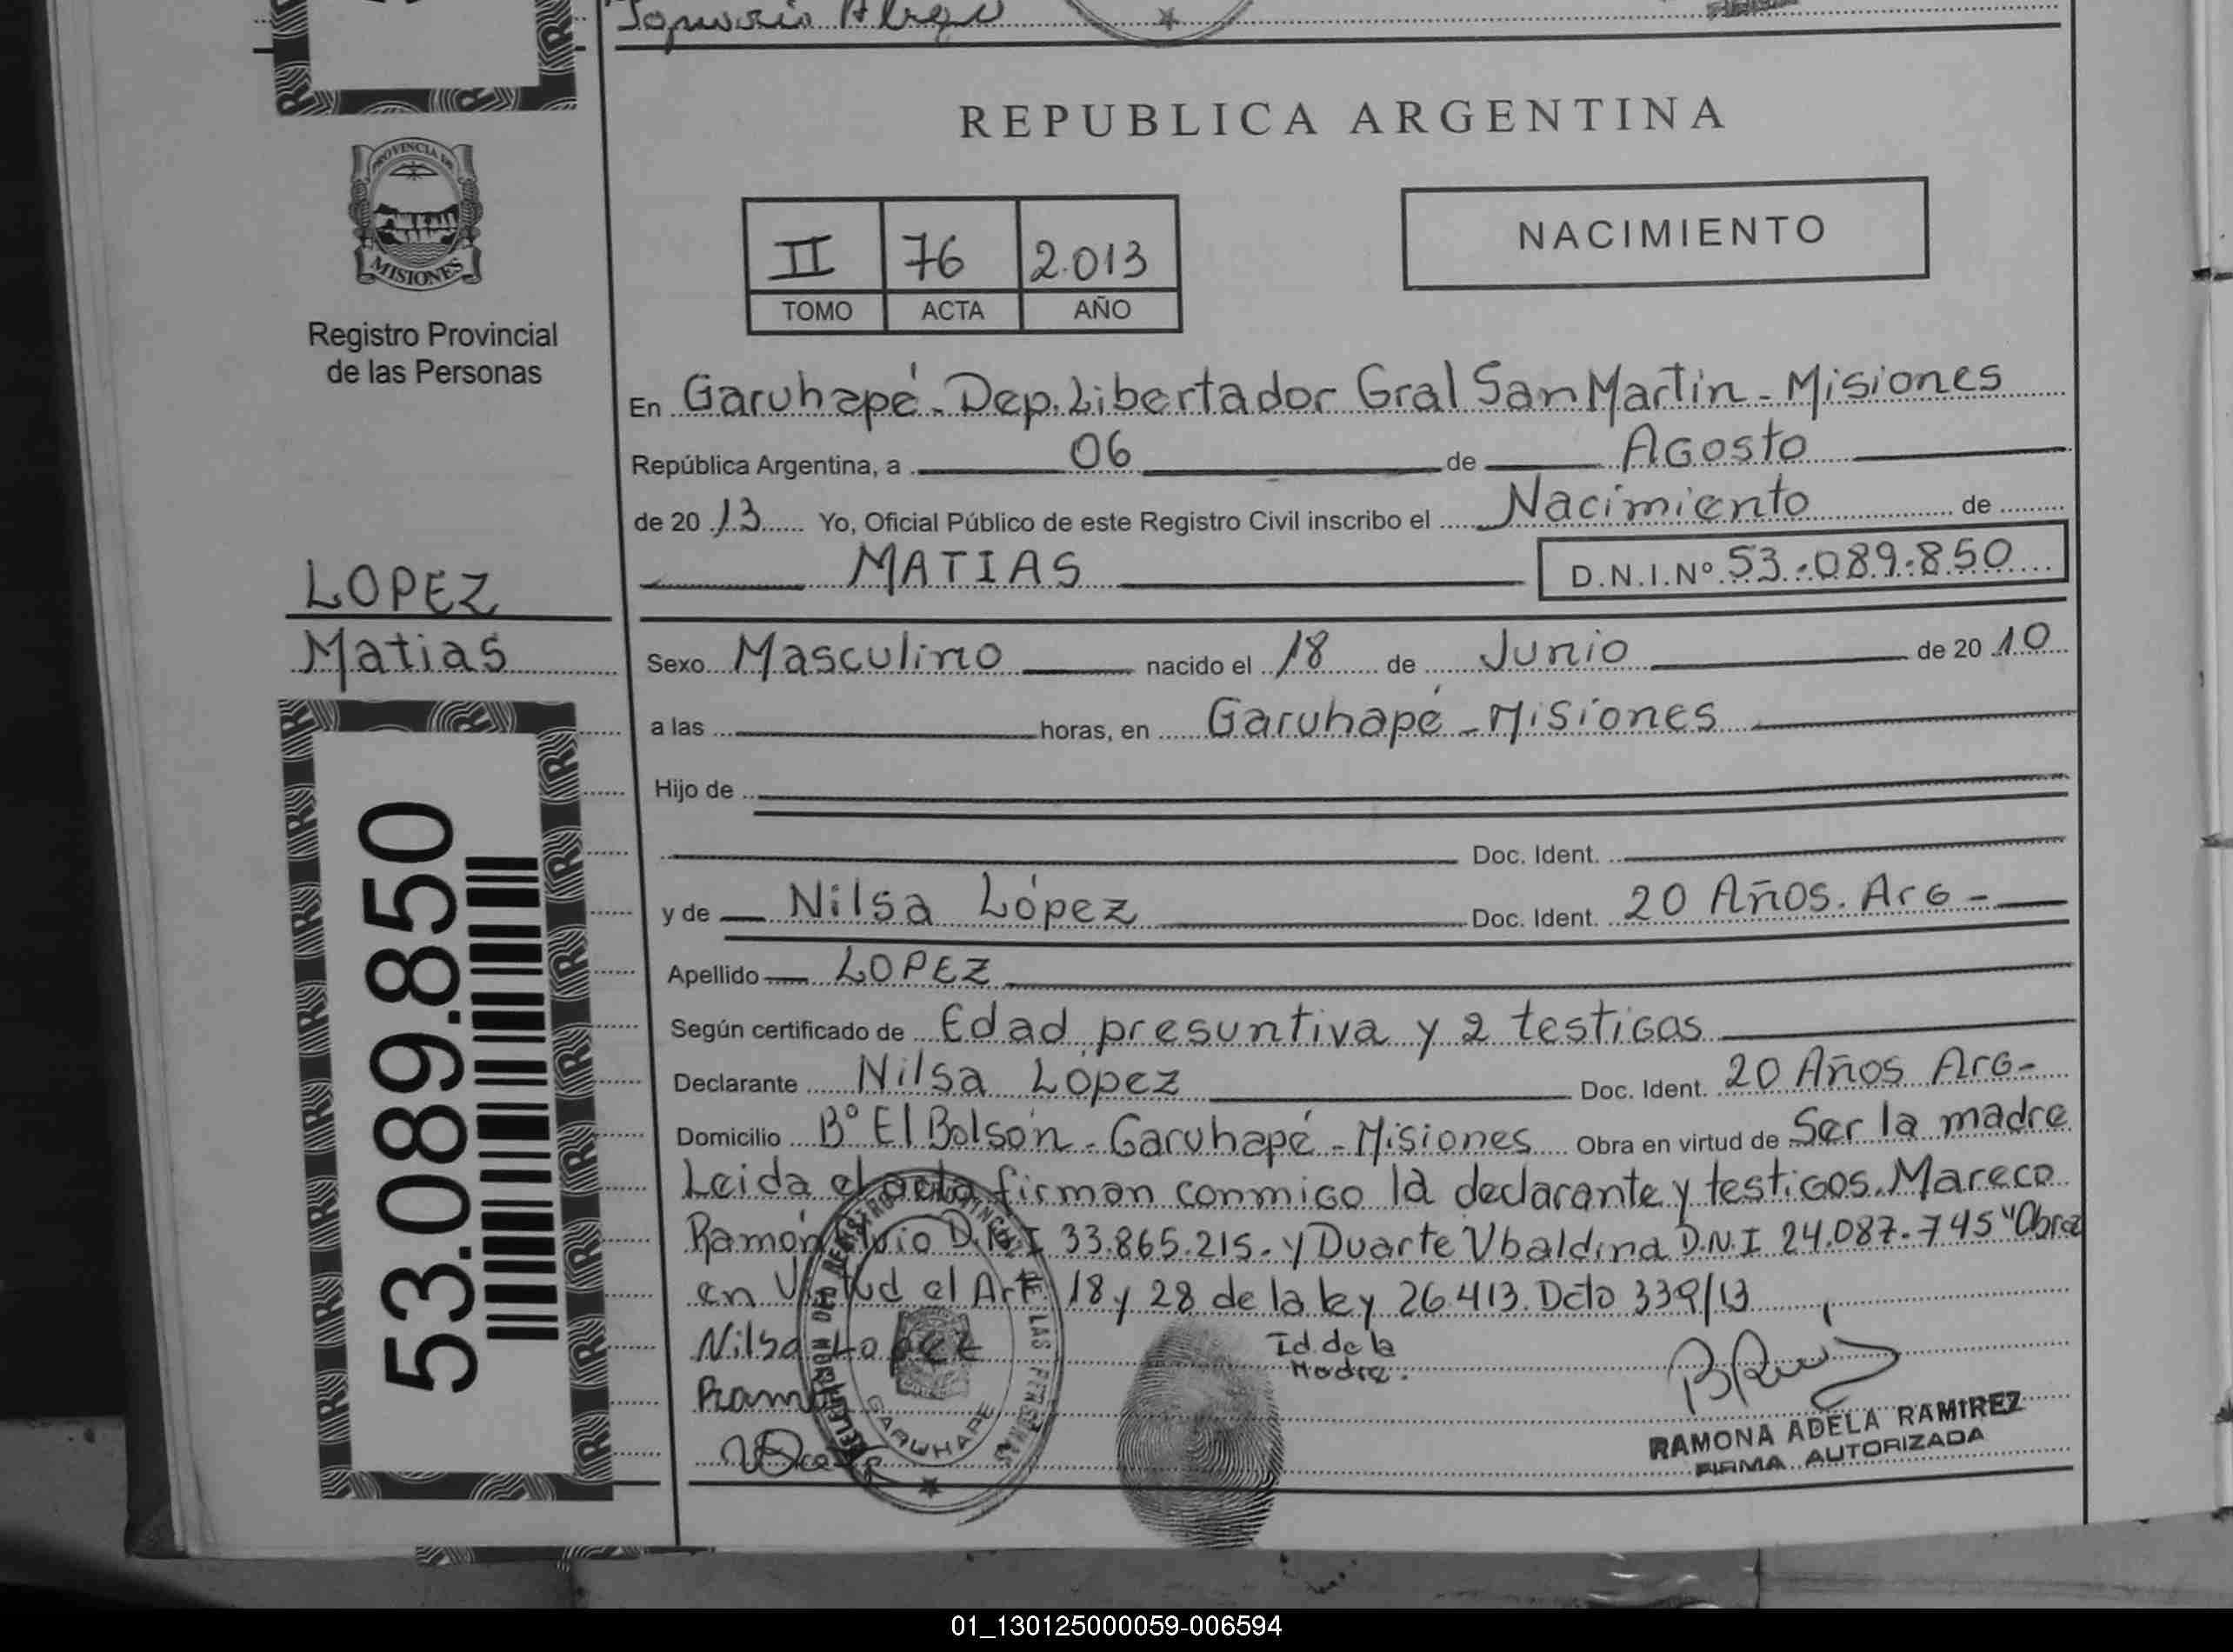 REPUBLICA ARGENTINA
PROVINCIA DE
MISIONES
Registro Provincial
de las Personas
II 76 2.013
TOMO ACTA AÑO
NACIMIENTO
En Garuhapé - Dep. Libertador Gral San Martin - Misiones
República Argentina, a 06 de Agosto
de 20 13 Yo, Oficial Público de este Registro Civil inscribo el Nacimiento de
MATIAS D.N.I.Nº 53.089.850
LOPEZ
Matias
Sexo Masculino nacido el 18 de Junio de 20 10
a las horas, en Garuhapé - Misiones
Hijo de
Doc. Ident.
y de Nilsa López Doc. Ident. 20 Años. Arg -
Apellido LOPEZ
Según certificado de Edad presuntiva y 2 testigos
Declarante Nilsa López Doc. Ident. 20 Años Arg -
Domicilio Bº El Bolsón - Garuhapé - Misiones Obra en virtud de Ser la madre
Leida el acta firman conmigo la declarante y testigos. Mareco
Ramón D.N.I 33.865.215. y Duarte Ubaldina D.N.I 24.087.745 "Obra
en Virtud el Art 18 y 28 de la ley 26.413. Dcto 339/13
Nilsa Lopez
Id. de la
Madre.
RAMONA ADELA RAMIREZ
FIRMA AUTORIZADA
GARUHAPE
53.089.850
01_130125000059-006594